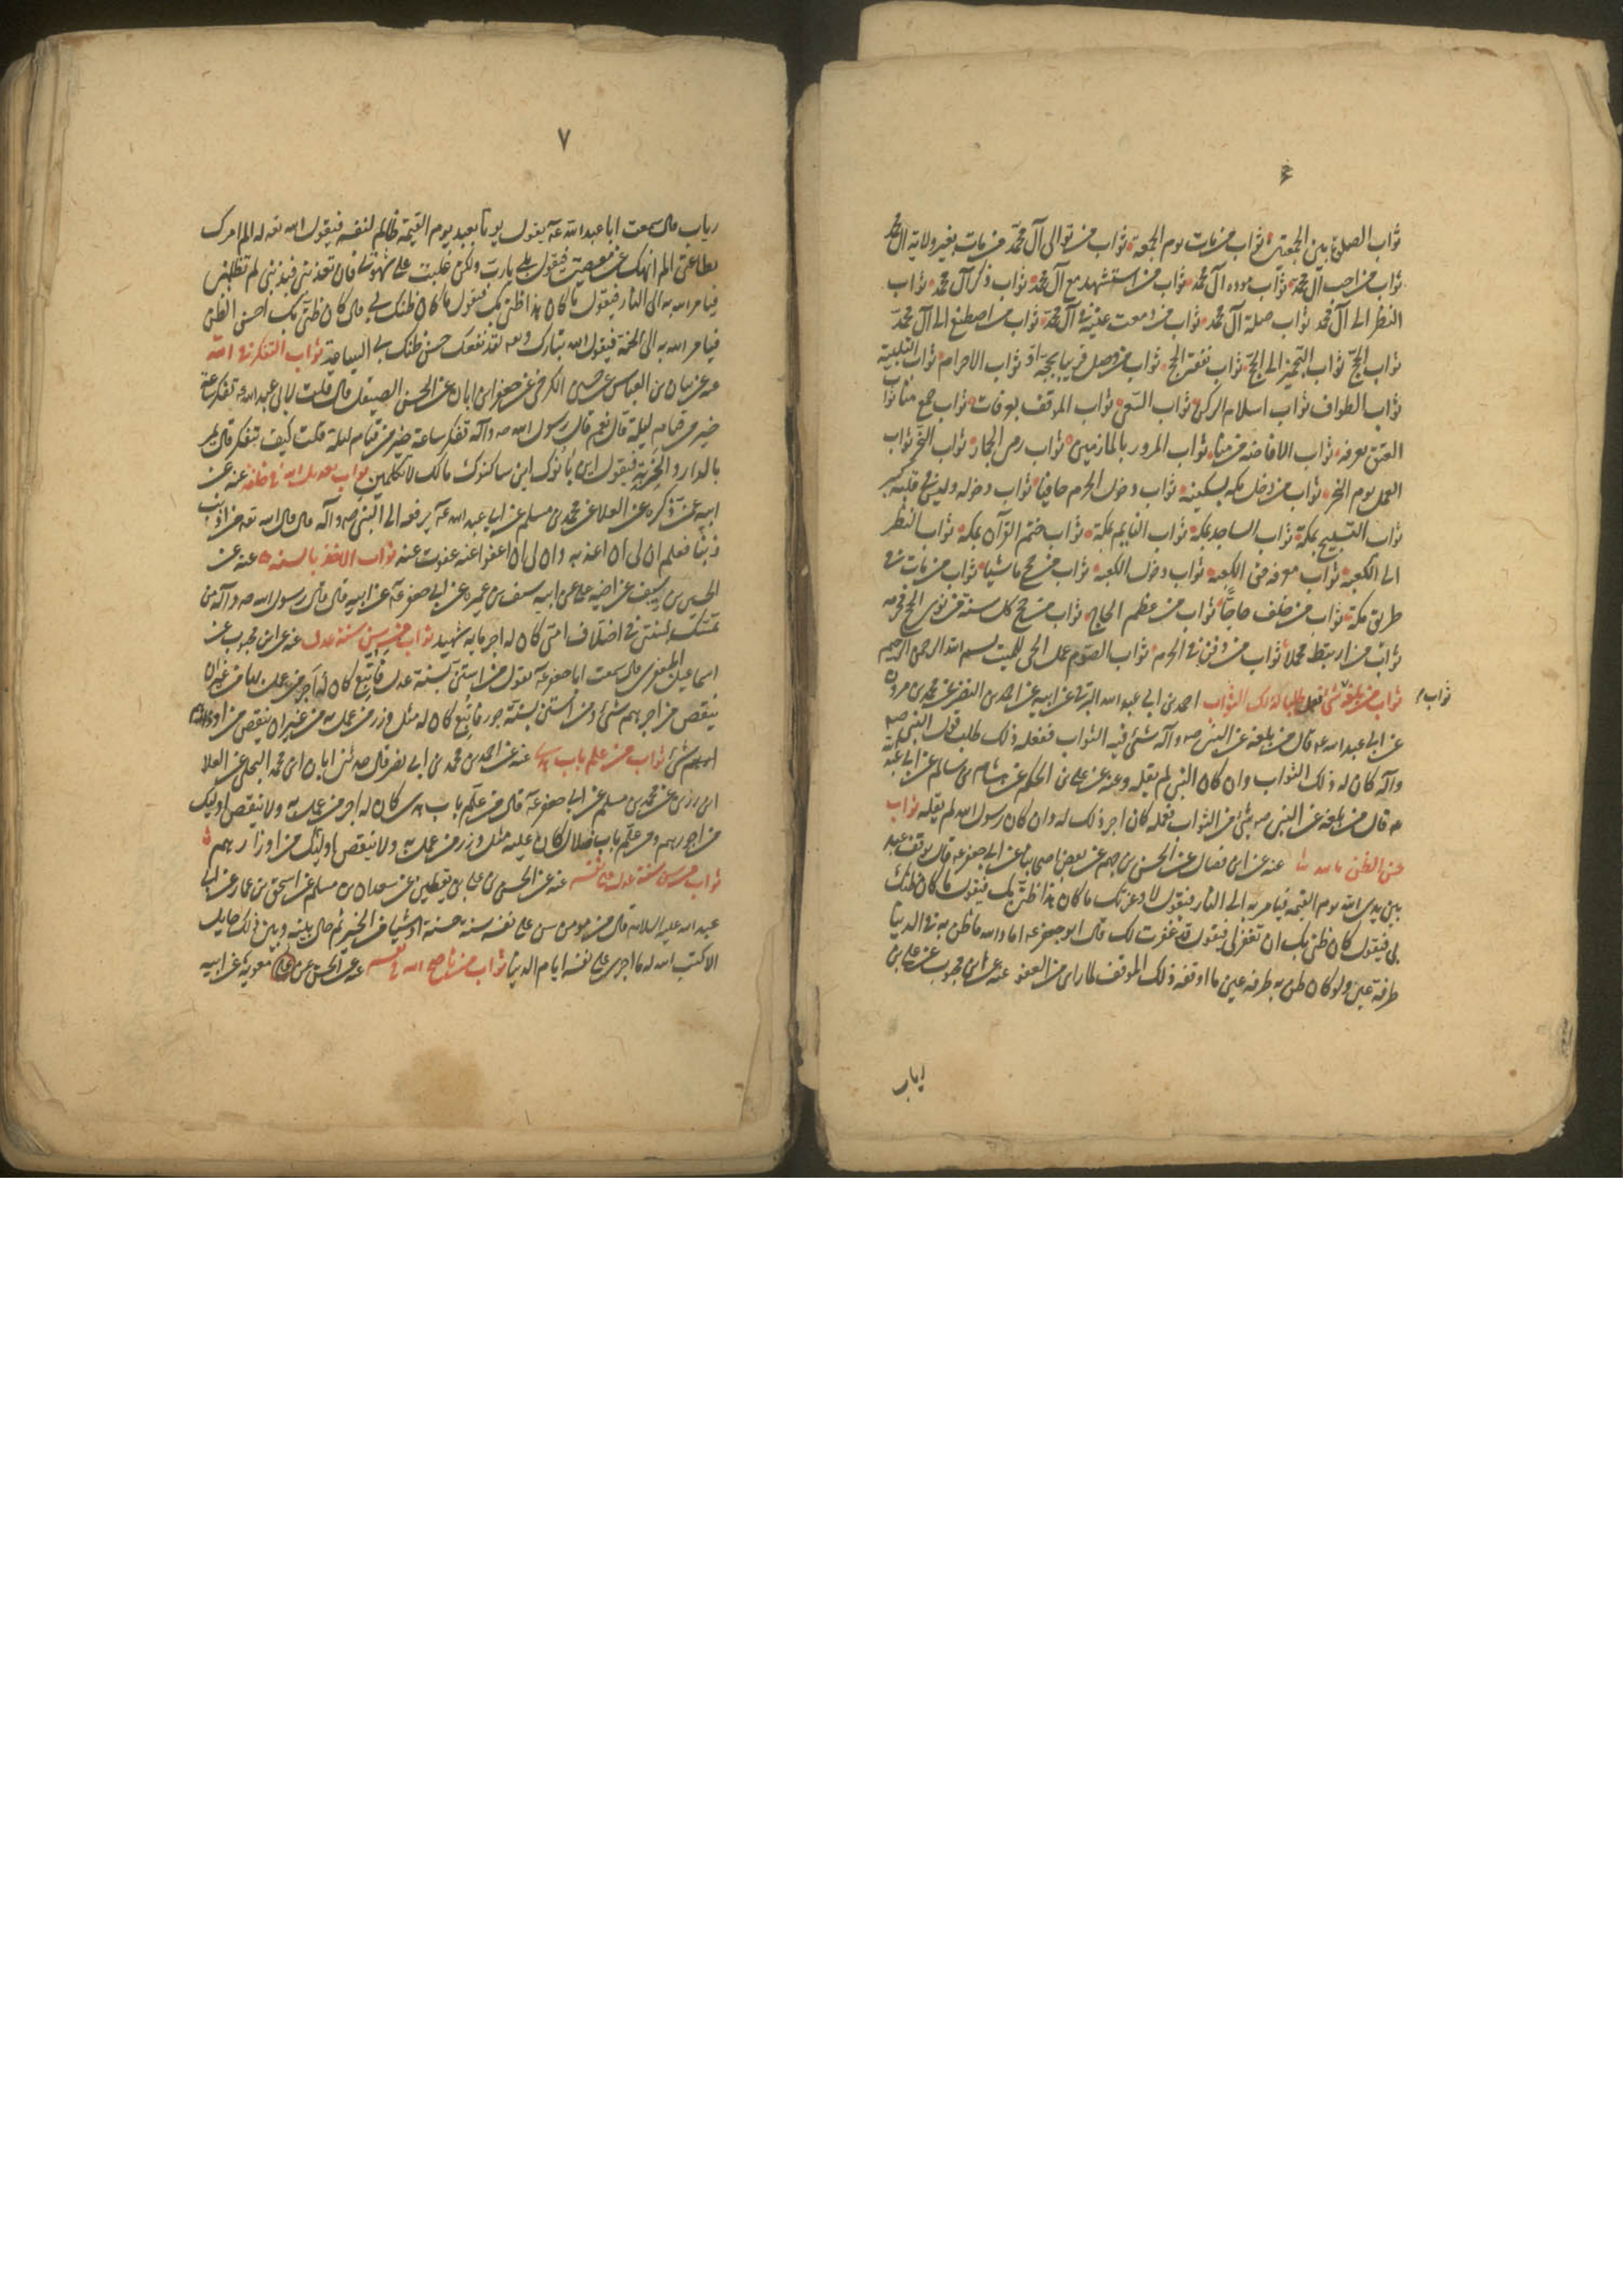 ع
ثواب الصلوة بين الجمعتين ثواب من مات يوم الجمعة ثواب من توالى آل محمد من مات بغير ولاية آل محمد
ثواب من احب آل محمد ثواب مودة آل محمد ثواب من استشهد مع آل محمد ثواب ذكر آل محمد ثواب
النظر الى آل محمد ثواب صلة آل محمد ثواب من دمعت عينه في آل محمد ثواب من اصطنع الى آل محمد
ثواب الحج ثواب التجهيز الى الحج ثواب نفقة الحج ثواب من وصل قريبا بحجة او ثواب الاحرام ثواب التلبية
ثواب الطواف ثواب استلام الركن ثواب السعي ثواب الموقف بعرفات ثواب جمع منا ثواب
العتق بعرفه ثواب الافاضه من منا ثواب المرور بالمازمين ثواب رمى الجمار ثواب النحر ثواب
العمل يوم النحر ثواب من دخل مكه بسكينه ثواب دخول الحرم حافيا ثواب دخوله وليس في قلبه كبر
ثواب التسبيح بمكة ثواب الساجد بمكة ثواب النايم بمكة ثواب ختم القرآن بمكة ثواب النظر
الى الكعبة ثواب معرفه حق الكعبه ثواب دخول الكعبه ثواب من حج ماشيا ثواب من مات في
طريق مكة ثواب من خلف حاجا ثواب من عظم الحاج ثواب من حج كل سنة من نوى الحج فحرمه
ثواب من ارتبط محملا ثواب من دفن في الحرم ثواب الصوم عمل الحي للميت بسم الله الرحمن الرحيم
ثواب من بلغه شئ فعمل طلبا لذلك الثواب احمد بن ابي عبد الله البرقي عن ابيه عن احمد بن النضر عن محمد بن مروان
ثواب
عن ابي عبد الله ع قال من بلغه عن النبي ص وآله شئ فيه الثواب ففعله ذلك طلب قول النبي صلى الله
وآله كان له ذلك الثواب وان كان النبي لم يقله وعنه عن علي بن الحكم عن هشام بن سالم عن ابي عبد الله
ع قال من بلغه عن النبي ص شئ من الثواب فعمله كان اجر ذلك له وان كان رسول الله لم يقله ثواب
حسن الظن بالله عنه عن ابن فضال عن الحسن بن جهم عن بعض اصحابنا عن ابي جعفر ع قال يوقف عبد
بين يدي الله يوم القيمه فيامر به الى النار فيقول لا وعزتك ما كان هذا ظني بك فيقول ما كان ظنك
بي فيقول كان ظني بك ان تغفر لي فيقول قد غفرت لك قال ابو جعفر ع اما والله ما ظن به في الدنيا
طرفة عين ولو كان ظن به طرفه عين ما اوقفه ذلك الموقف لما راى من العفو عنه عن ابن محبوب عن علي بن
اياب
٧
رياب قال سمعت ابا عبد الله ع يقول يوتا بعبد يوم القيمة ظالم لنفسه فيقول الله تعه له الم امرك
بطاعتي الم انهك عن معصيتي فيقول بلى يا رب ولكن غلبت علي شهوتي فان تعذبني فبذنبي لم تظلمني
فيامر الله به الى النار فيقول ما كان هذا ظني بك فيقول ما كان ظنك بي قال كان ظني بك احسن الظن
فيامر الله به الى الجنة فيقول الله تبارك وتعه لقد نفعك حسن ظنك بي الساعة ثواب التفكر في الله
عنه عن بنان بن العباس عن حسين الكرخي عن جعفر ابن ابان عن الحسن الصيقل قال قلت لابي عبد الله ع تفكر ساعة
خير من قيام ليلة قال نعم قال رسول الله ص وآله تفكر ساعة خير من قيام ليلة قلت كيف يتفكر قال يمر
بالدار والخربة فيقول اين بانوك اين ساكنوك مالك لا تتكلمين عنه عن
ابيه عمن ذكره عن العلا عن محمد بن مسلم عن ابي عبد الله ع يرفعه الى النبي ص وآله قال قال الله تعه من اذنب
ذنبا فعلم ان لي ان اعذبه وان لي ان اعفوا عنه عفوت عنه ثواب الاخذ بالسنه عنه عن
الحسين بن سيف عن اخيه علي عن ابيه سيف بن عميره عن ابي جعفر ع عن ابيه قال قال رسول الله ص وآله من
تمسك بسنتي في اختلاف امتي كان له اجر مايه شهيد ثواب من سن سنة عدل عنه عن ابن محبوب عن
اسماعيل الجعفري قال سمعت ابا جعفر ع يقول من استن بسنة عدل فاتبع كان له اجر من عمل بها من غير ان
ينقص من اجرهم شئ ومن استن بسنة جور فاتبع كان له مثل وزر من عمل به من غير ان ينقص من اوزارهم
شئ ثواب من علم باب هدى عنه عن احمد بن محمد بن ابي نصر قال حدثني ابان ابن محمد البجلي عن العلا
ابن رزين عن محمد بن مسلم عن ابي جعفر ع قال من علم باب هدى كان له اجر من عمل به ولا ينقص اوليك
من اجورهم ومن علم باب ضلال كان عليه مثل وزر من عمل به ولا ينقص اوليك من اوزارهم
ثواب من سن سنة عدل على نفسه عنه عن الحسن بن علي بن يقطين عن سعدان بن مسلم عن اسحق بن عمار عن ابي
عبد الله عليه السلام قال من مومن سن على نفسه سنة حسنة او شيا من الخير ثم حال بينه وبين ذلك حايل
الا كتب الله له ما اجرى على نفسه ايام الدنيا ثواب من ناصح الله في نفسه عنه عن الحسن عن معوية عن ابيه